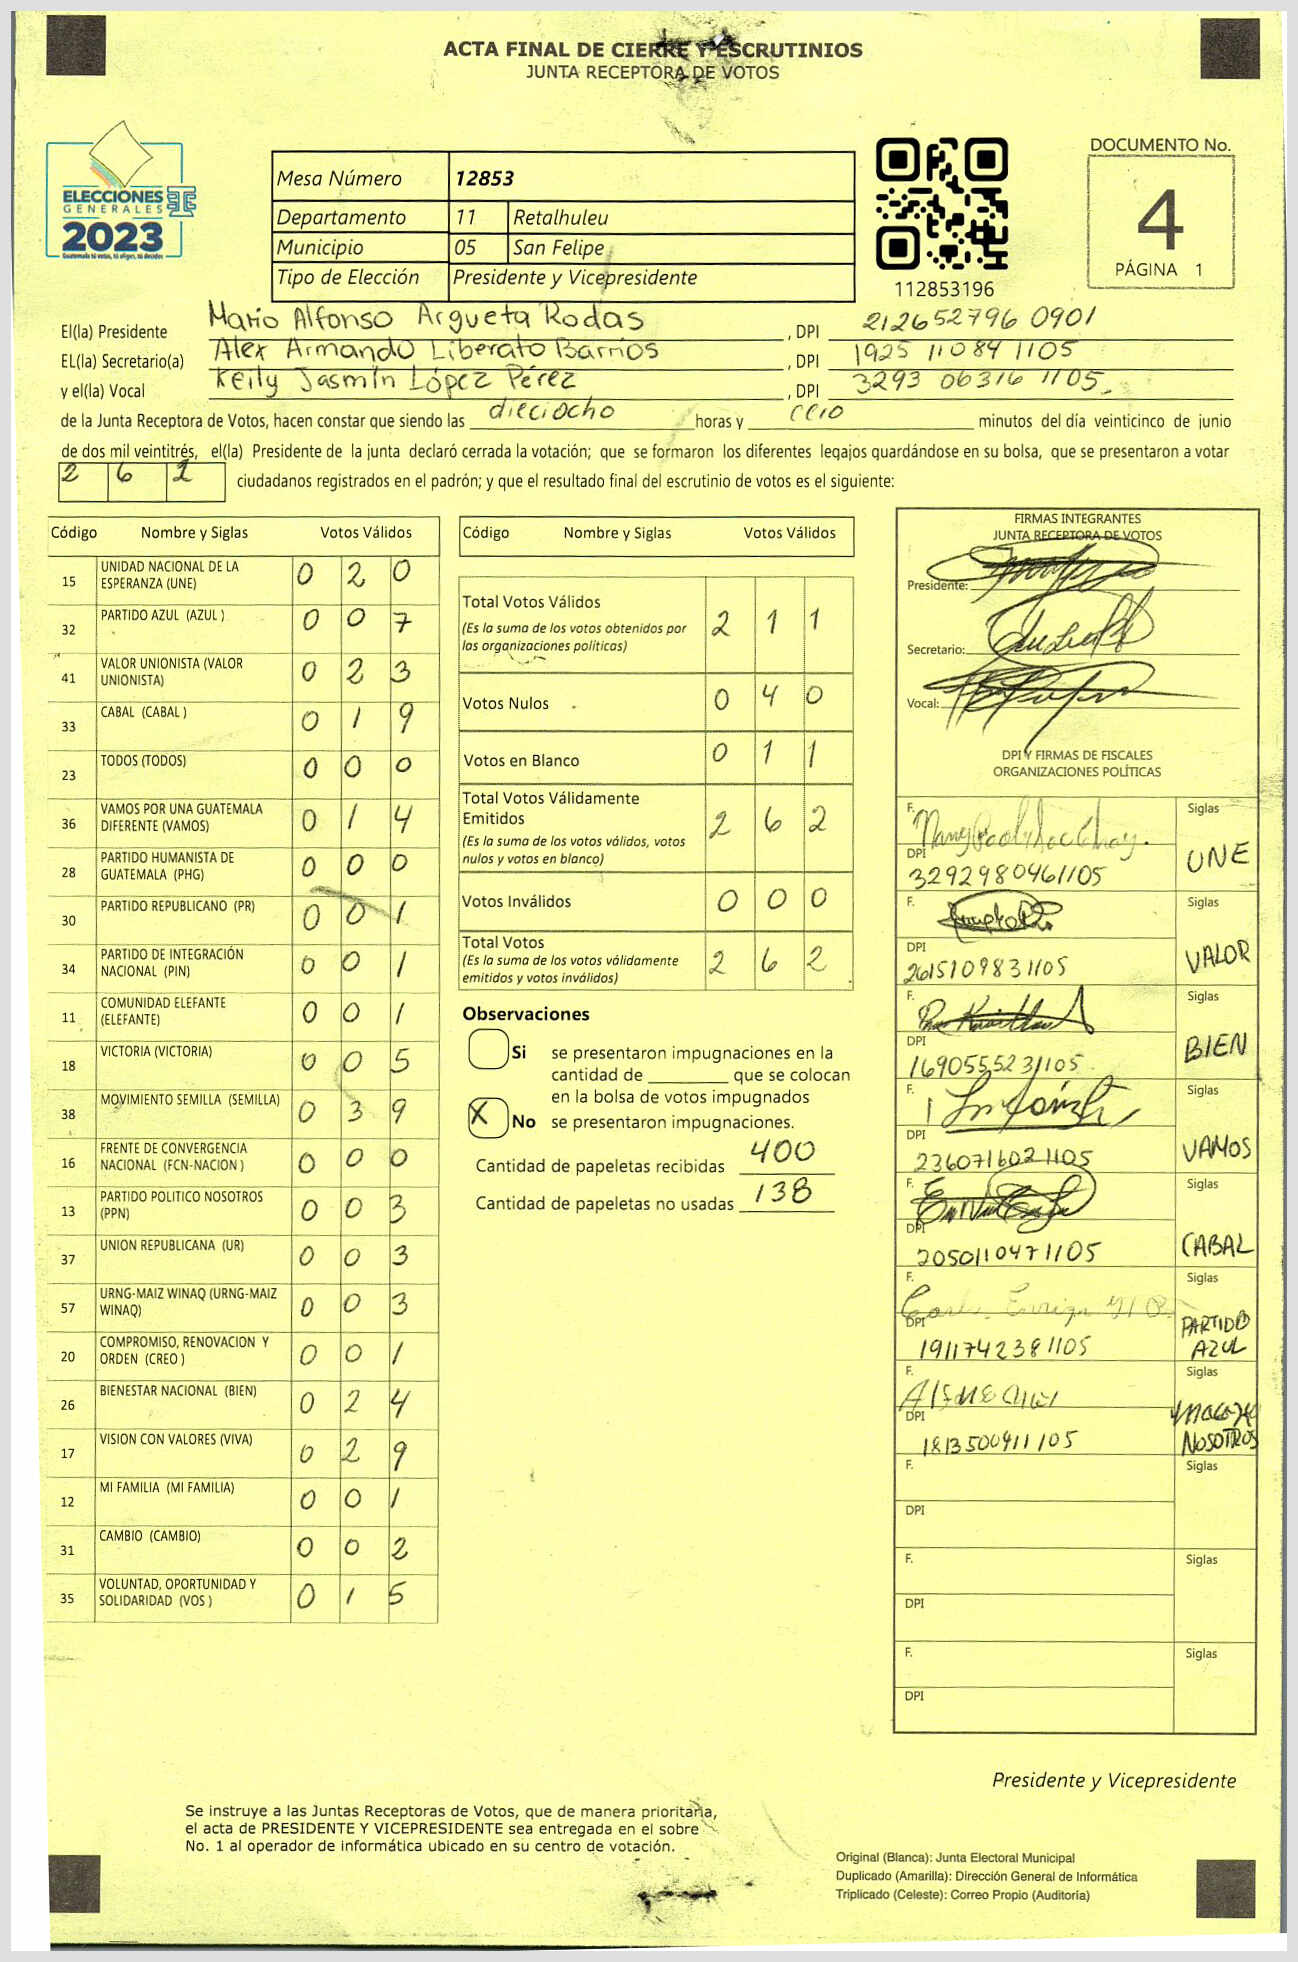 ACTA FINAL DE CIERRE Y ESCRUTINIOS
JUNTA RECEPTORA DE VOTOS
ELECCIONES
GENERALES
2023
Guatemala tú votas, tú eliges, tú decides
Mesa Número 12853
Departamento 11 Retalhuleu
Municipio 05 San Felipe
Tipo de Elección Presidente y Vicepresidente
112853196
DOCUMENTO No.
4
PÁGINA 1
El(la) Presidente Mario Alfonso Argueta Rodas, DPI 212652796 0901
EL(la) Secretario(a) Alex Armando Liberato Barrios, DPI 1925 11084 1105
y el(la) Vocal Keily Jasmín López Pérez, DPI 3293 06316 1105
de la Junta Receptora de Votos, hacen constar que siendo las dieciocho horas y cero minutos del día veinticinco de junio
de dos mil veintitrés, el(la) Presidente de la junta declaró cerrada la votación; que se formaron los diferentes legajos guardándose en su bolsa, que se presentaron a votar
2 6 2 ciudadanos registrados en el padrón; y que el resultado final del escrutinio de votos es el siguiente:
Código Nombre y Siglas Votos Válidos
15 UNIDAD NACIONAL DE LA ESPERANZA (UNE) 0 2 0
32 PARTIDO AZUL (AZUL ) 0 0 7
41 VALOR UNIONISTA (VALOR UNIONISTA) 0 2 3
33 CABAL (CABAL ) 0 1 9
23 TODOS (TODOS) 0 0 0
36 VAMOS POR UNA GUATEMALA DIFERENTE (VAMOS) 0 1 4
28 PARTIDO HUMANISTA DE GUATEMALA (PHG) 0 0 0
30 PARTIDO REPUBLICANO (PR) 0 0 1
34 PARTIDO DE INTEGRACIÓN NACIONAL (PIN) 0 0 1
11 COMUNIDAD ELEFANTE (ELEFANTE) 0 0 1
18 VICTORIA (VICTORIA) 0 0 5
38 MOVIMIENTO SEMILLA (SEMILLA) 0 3 9
16 FRENTE DE CONVERGENCIA NACIONAL (FCN-NACION ) 0 0 0
13 PARTIDO POLITICO NOSOTROS (PPN) 0 0 3
37 UNION REPUBLICANA (UR) 0 0 3
57 URNG-MAIZ WINAQ (URNG-MAIZ WINAQ) 0 0 3
20 COMPROMISO, RENOVACION Y ORDEN (CREO ) 0 0 1
26 BIENESTAR NACIONAL (BIEN) 0 2 4
17 VISION CON VALORES (VIVA) 0 2 9
12 MI FAMILIA (MI FAMILIA) 0 0 1
31 CAMBIO (CAMBIO) 0 0 2
35 VOLUNTAD, OPORTUNIDAD Y SOLIDARIDAD (VOS ) 0 1 5
Código Nombre y Siglas Votos Válidos
Total Votos Válidos 2 1 1
(Es la suma de los votos obtenidos por
las organizaciones políticas)
Votos Nulos 0 4 0
Votos en Blanco 0 1 1
Total Votos Válidamente
Emitidos 2 6 2
(Es la suma de los votos válidos, votos
nulos y votos en blanco)
Votos Inválidos 0 0 0
Total Votos 2 6 2
(Es la suma de los votos válidamente
emitidos y votos inválidos)
Observaciones
Si se presentaron impugnaciones en la
cantidad de ________ que se colocan
en la bolsa de votos impugnados
X No se presentaron impugnaciones.
Cantidad de papeletas recibidas 400
Cantidad de papeletas no usadas 138
FIRMAS INTEGRANTES
JUNTA RECEPTORA DE VOTOS
Presidente:
Secretario:
Vocal:
DPI Y FIRMAS DE FISCALES
ORGANIZACIONES POLÍTICAS
F. Siglas
DPI 3292980461105 UNE
F. Siglas
DPI 2615109831105 VALOR
F. Siglas
DPI 1690555231105 BIEN
F. Siglas
DPI 2360716021105 VAMOS
F. Siglas
DPI 2050110471105 CABAL
F. Siglas
DPI 1911742381105 PARTIDO AZUL
F. Siglas
DPI 1813500911105 NOSOTROS
F. Siglas
DPI
F. Siglas
DPI
F. Siglas
DPI
Presidente y Vicepresidente
Se instruye a las Juntas Receptoras de Votos, que de manera prioritaria,
el acta de PRESIDENTE Y VICEPRESIDENTE sea entregada en el sobre
No. 1 al operador de informática ubicado en su centro de votación.
Original (Blanca): Junta Electoral Municipal
Duplicado (Amarilla): Dirección General de Informática
Triplicado (Celeste): Correo Propio (Auditoría)